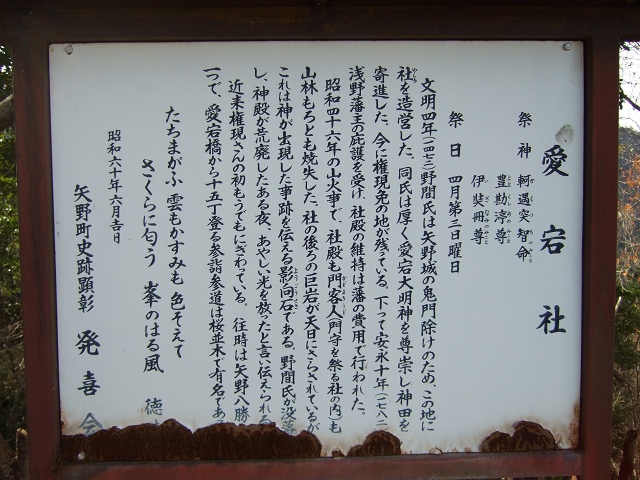 愛宕社
祭神 軻遇突智命
豊勘渟尊
伊裝冊尊
祭日 四月第三日曜日
文明四年(一四七三)野間氏は矢野城の鬼門除けのため、この地に
社を造営した。同氏は厚く愛宕大明神を尊崇し神田を
寄進した。今に権現免の地が残っている。下って安永十年(一七八一)
浅野藩主の庇護を受け、社殿の維持は藩の費用で行われた。
昭和四十六年の山火事で、社殿も門客人門守を祭る社の内も
山林もろとも焼失した。社の後ろの巨岩が天日にさらされているが
これは神が出現した事跡を伝える影向石である。野間氏が没落
し、神殿が荒廃したある夜、あやしい光を放ったと言い伝えられる
近来権現さんの初もうでもにぎわっている。往時は矢野八勝
一つで、愛宕橋から十五丁登る参詣参道は桜並木で有名であ
たちまがふ 雲もかすみも 色そえて
さくらに匂う 峯のはる風 徳
昭和六十年六月吉日
矢野町史跡顕彰 発喜会